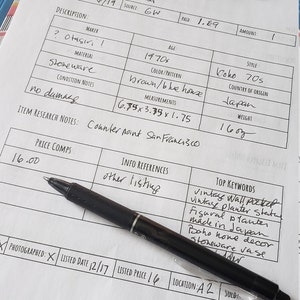 /19 SOURCE: GW PAID 1.29 AMOUNT: 1
DESCRIPTION:
MAKER AGE STYLE
? Otagiri 1970s Boho 70s
MATERIAL COLOR/PATTERN COUNTRY OF ORIGIN
stoneware brown/blue house Japan
CONDITION NOTES MEASUREMENTS WEIGHT
no damage 6.75 x 3.75 x 1.75 16 oz
ITEM RESEARCH NOTES: Counterpoint San Francisco
PRICE COMPS INFO REFERENCES TOP KEYWORDS
16.00 other listing
vintage wall pocket
vintage planter
Figural planter
made in Japan
Boho home decor
stoneware vase
X PHOTOGRAPHED: X LISTED DATE 12/17 LISTED PRICE 16 LOCATION A2 SOLD: